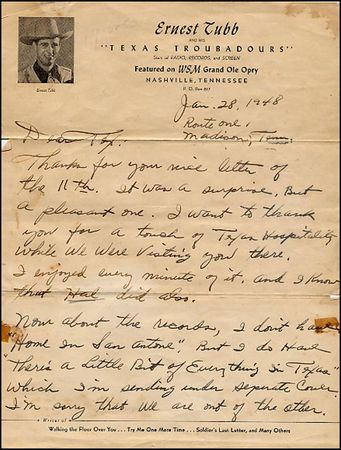 Ernest Tubb
AND HIS
"TEXAS TROUBADOURS"
Stars of RADIO, RECORDS, and SCREEN
Featured on WSM Grand Ole Opry
NASHVILLE, TENNESSEE
P. O. Box 817
Ernest Tubb
Jan. 28, 1948
Route one,
Madison, Tenn.
Dear Tex:
Thanks for your nice letter of
the 11th. It was a surprise, But
a pleasant one. I want to thank
you for a touch of Texas Hospitality
while we were visiting you there.
I enjoyed every minute of it, and I know
that Hal did also.
Now about the records, I don't have
"Home In San Antone", But I do Have
"There's a Little Bit of Everything in Texas"
which I'm sending under separate cover.
I'm sorry that we are out of the other.
Writer of
Walking the Floor Over You . . . Try Me One More Time . . . Soldier's Last Letter, and Many Others